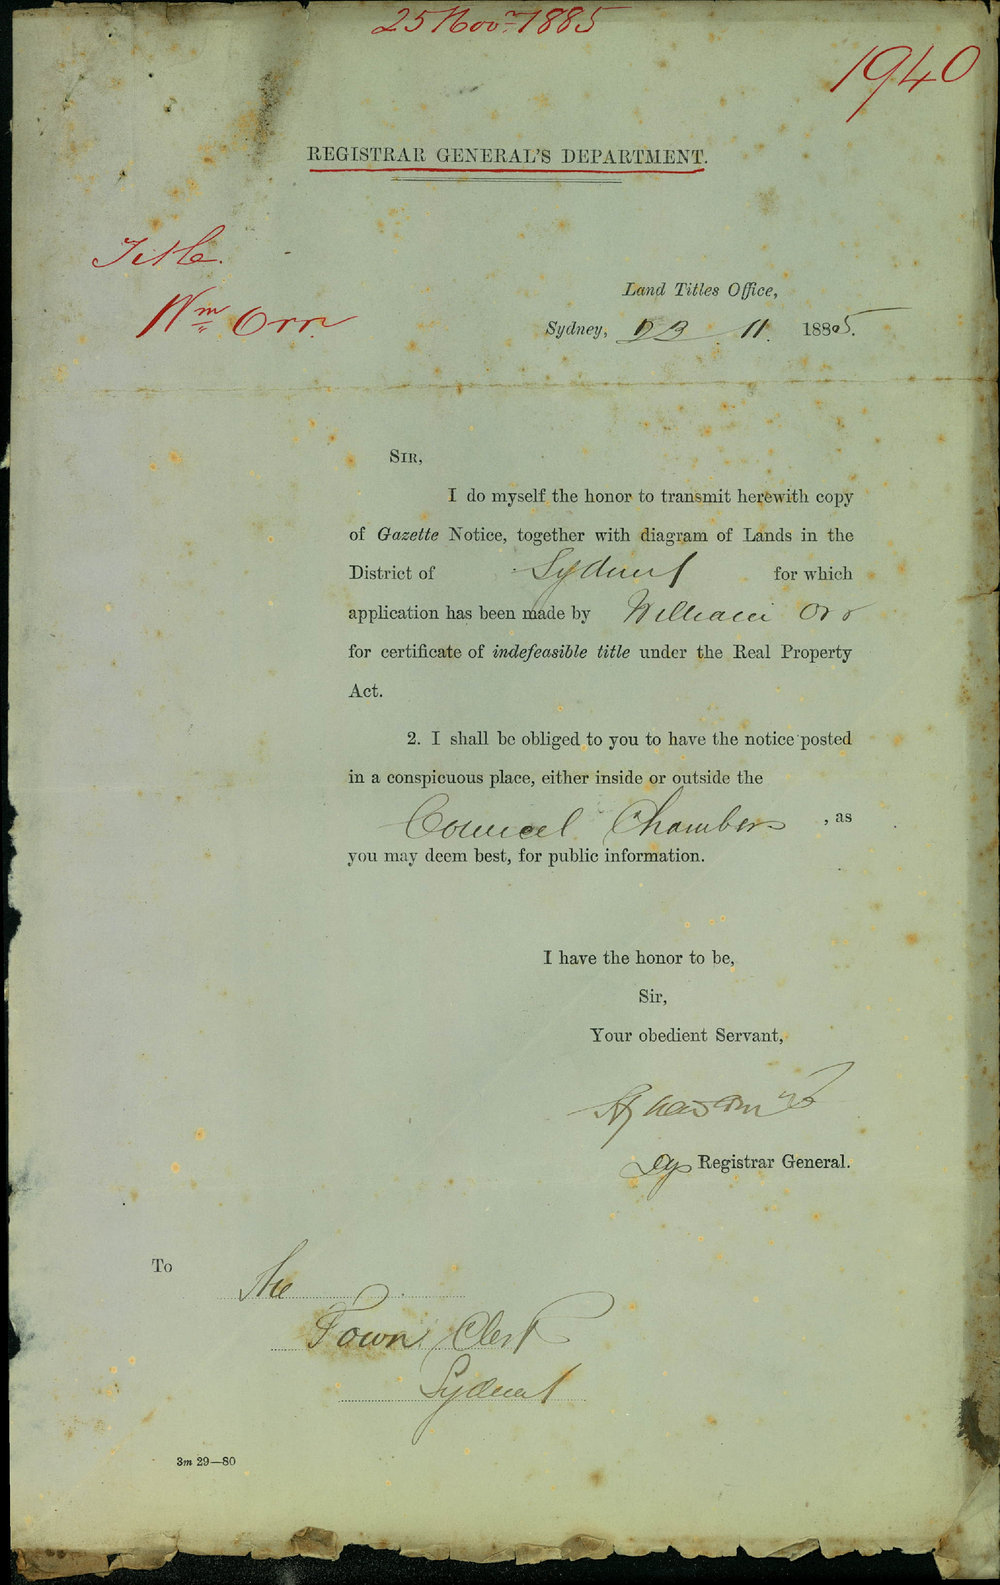 25 Novr 1885
1940
REGISTRAR GENERAL'S DEPARTMENT.
Title.
Wm Orr.
Land Titles Office,
Sydney, 23. 11. 1885.
SIR,
I do myself the honor to transmit herewith copy
of Gazette Notice, together with diagram of Lands in the
District of Sydney for which
application has been made by William Orr
for certificate of indefeasible title under the Real Property
Act.
2. I shall be obliged to you to have the notice posted
in a conspicuous place, either inside or outside the
Council Chambers , as
you may deem best, for public information.
I have the honor to be,
Sir,
Your obedient Servant,
Dy Registrar General.
To The
Town Clerk
Sydney
3m 29—80